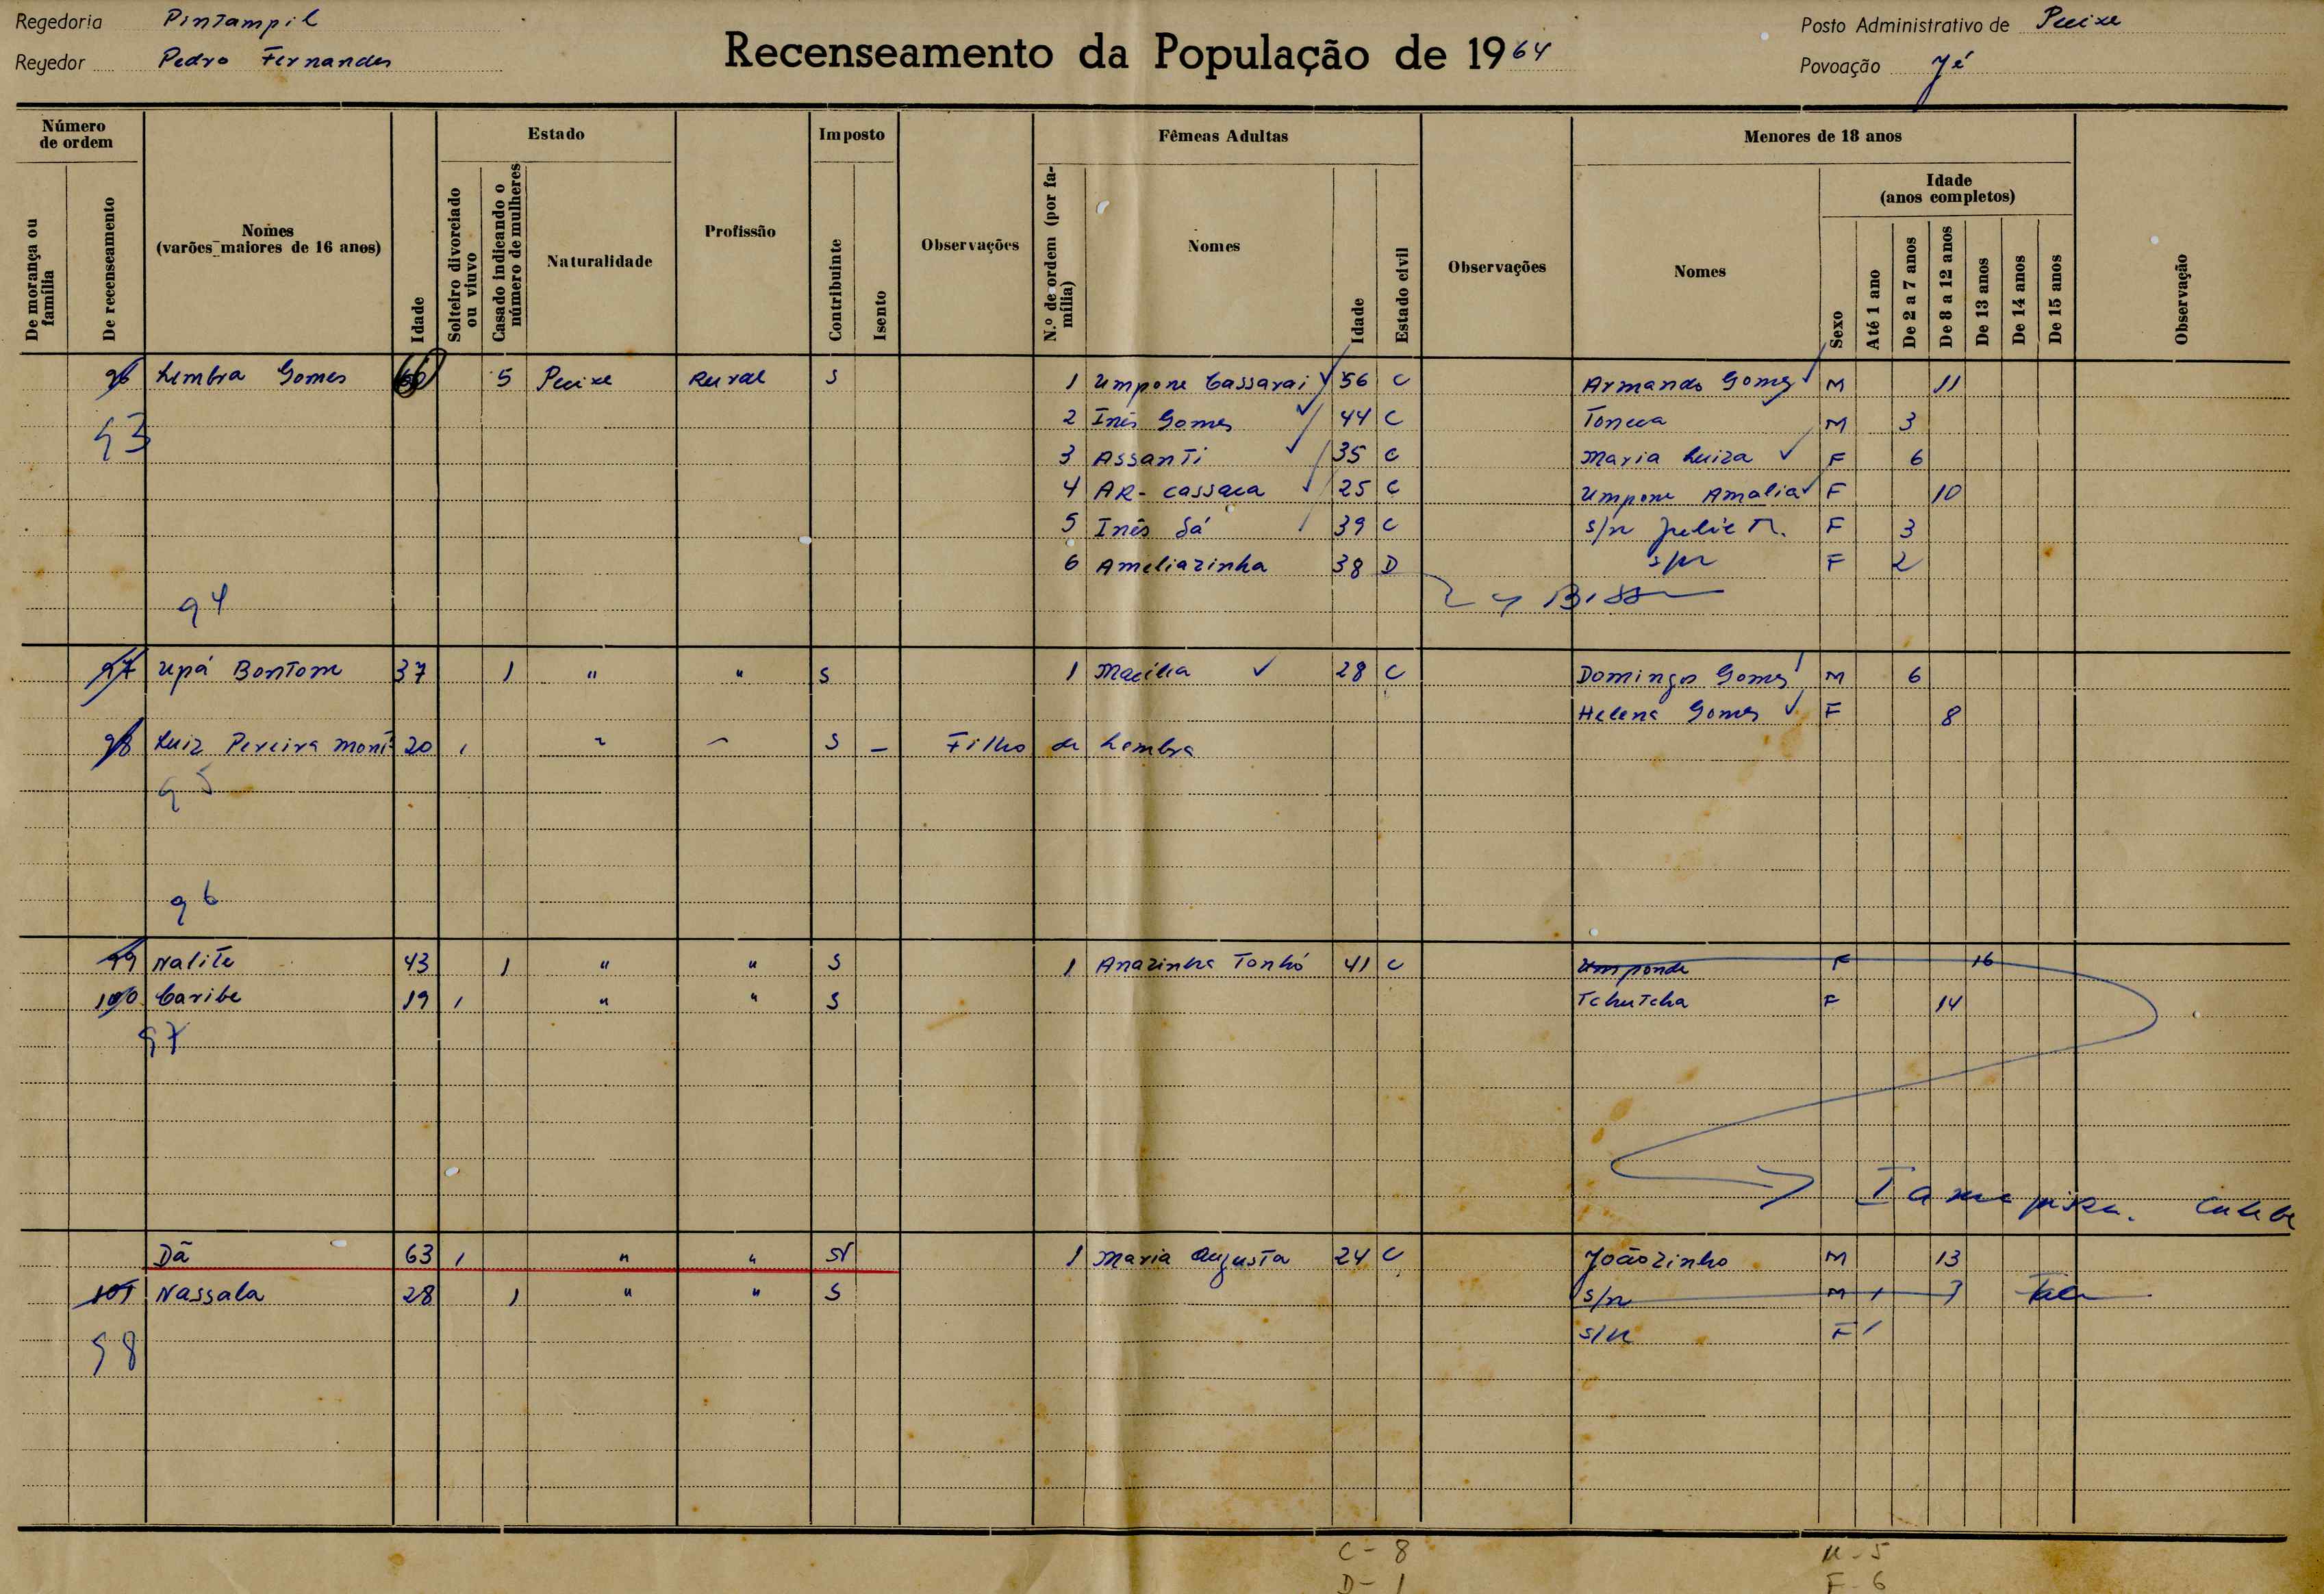 Regedoria Pintampil
Regedor Pedro Fernandes
Recenseamento da População de 1964
Posto Administrativo de Pecixe
Povoação Jé
Número de ordem
De morança ou família
De recenseamento
Nomes (varões maiores de 16 anos)
Idade
Estado
Solteiro divorciado ou viuvo
Casado indicando o número de mulheres
Naturalidade
Profissão
Imposto
Contribuinte
Isento
Observações
Fêmeas Adultas
N.º de ordem (por família)
Nomes
Idade
Estado civil
Observações
Menores de 18 anos
Nomes
Sexo
Idade (anos completos)
Até 1 ano
De 2 a 7 anos
De 8 a 12 anos
De 13 anos
De 14 anos
De 15 anos
Observação
96 Lembra Gomes 5 Pecixe Rural S 1 Umpone Cassarai 56 C Armando Gomes M 11
93 2 Inês Gomes 44 C Toneca M 3
3 Assanti 35 C Maria Luiza F 6
4 AR-cassaca 25 C Umpone Amalia F 10
5 Inês Sá 39 C s/n F 3
6 Ameliazinha 38 D s/n F 2
94
97 Upá Bontone 37 1 " " S 1 Macilia 28 C Domingos Gomes M 6
Helena Gomes F 8
98 Luiz Pereira 20 S – Filho de Lembra
95
96
99 Nalite 43 1 " " S 1 Anazinha Tonhó 41 C Umponde F 16
100 Caribe 19 " " S Tchutcha F 14
97
Dã 63 " " 1 Maria Augusta 24 C Joãozinho M 13
101 Nassala 28 1 " " S s/n M
98 s/n F
C - 8
D - 1
M - 5
F - 6